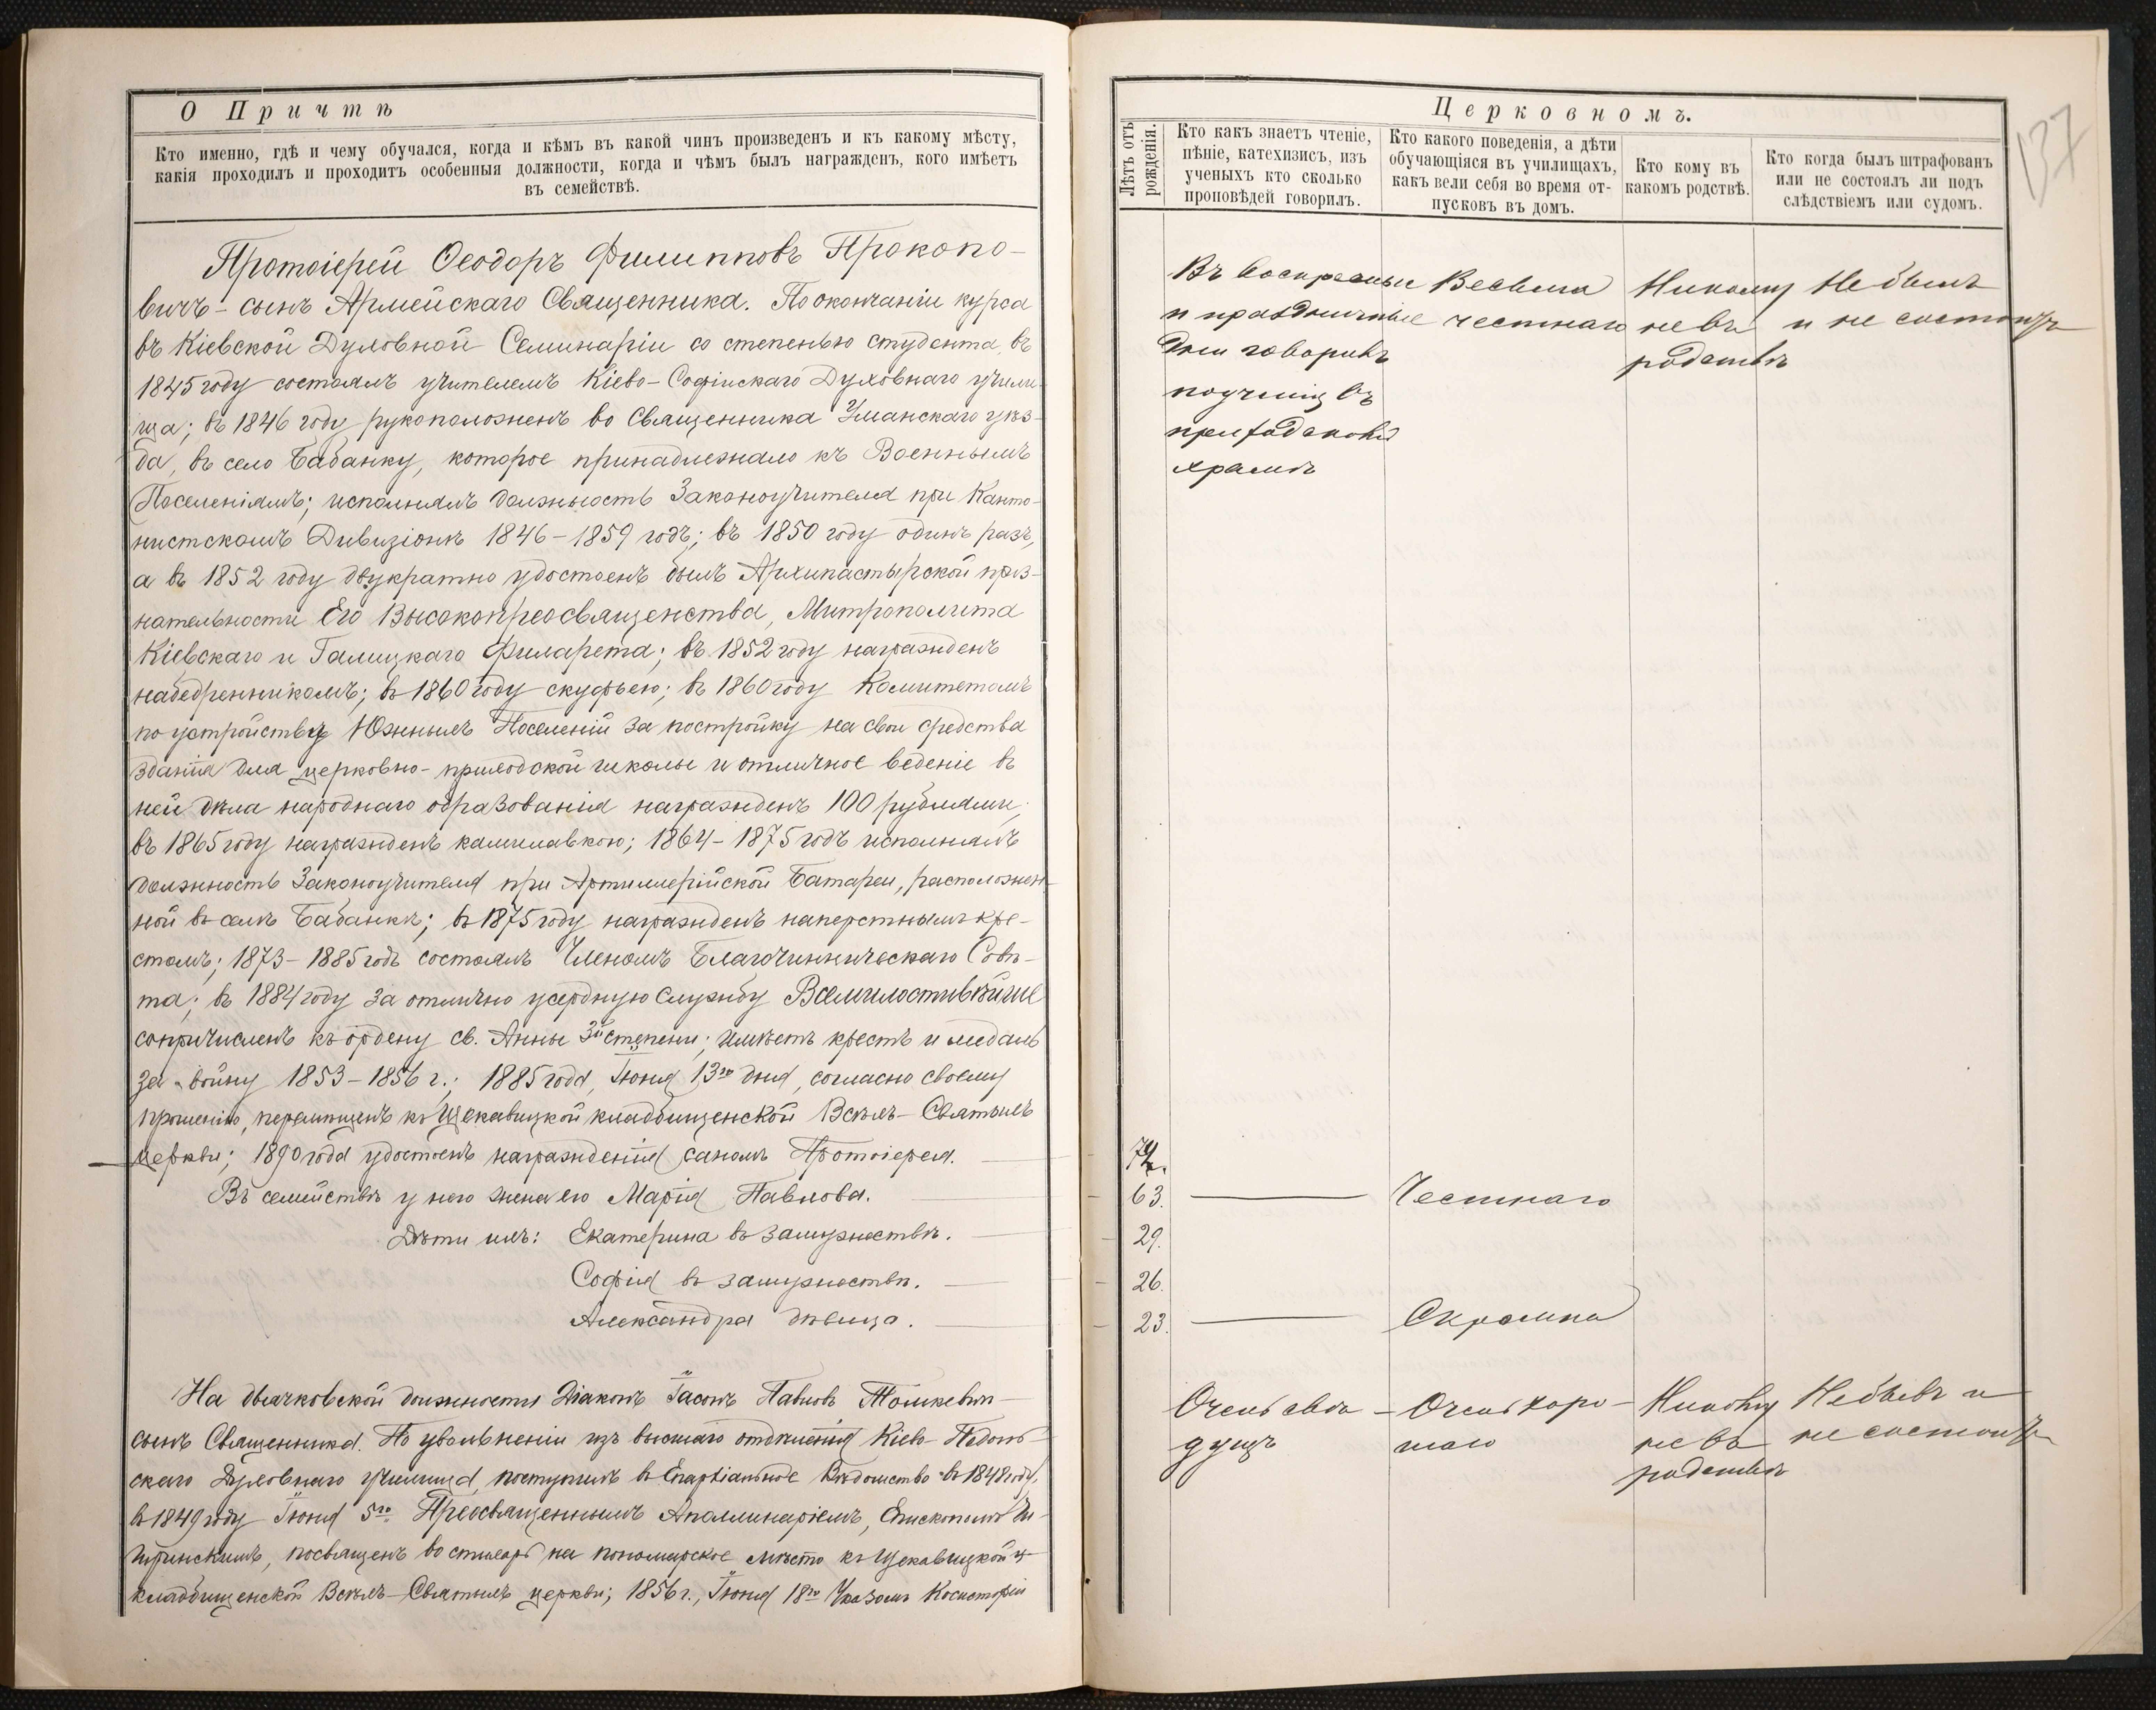 О Причтѣ
Кто именно, гдѣ и чему обучался, когда и кѣмъ въ какой чинъ произведенъ и къ какому мѣсту,
какія проходилъ и проходитъ особенныя должности, когда и чѣмъ былъ награжденъ, кого имѣетъ
въ семействѣ.
Протоіерей Ѳеодоръ Филипповъ Прокопо-
вичъ - сынъ Армейскаго Священника. По окончаніи курса
въ Кіевской Духовной Семинаріи со степенью студента, въ
1845 году состоялъ учителемъ Кіево-Софійскаго Духовнаго учили-
ща; въ 1846 году рукоположенъ во Священника Уманскаго уѣз-
да, въ село Бабанку, которое принадлежало къ Военнымъ
Поселеніямъ; исполнялъ должность Законоучителя при Канто-
нистскомъ Дивизіонѣ 1846-1859 годъ; въ 1850 году одинъ разъ,
а въ 1852 году двукратно удостоенъ былъ Архипастырской приз-
нательности Его Высокопреосвященства, Митрополита
Кіевскаго и Галицкаго Филарета; въ 1852 году награжденъ
набедренникомъ; въ 1860 году скуфьею; въ 1860 году Комитетомъ
по устройству Южныхъ Поселеній за постройку на свои средства
зданія для церковно-приходской школы и отличное веденіе въ
ней дѣла народнаго образованія награжденъ 100 рублями;
въ 1865 году награжденъ камилавкою; 1864-1875 годъ исполнялъ
должность Законоучителя при Артиллерійской Батареи, расположен-
ной въ селѣ Бабанкѣ; въ 1875 году награжденъ наперстнымъ кре-
стомъ; 1873-1885 годъ состоялъ Членомъ Благочинническаго Совѣ-
та; въ 1884 году за отлично усердную службу Всемилостивѣйше
сопричисленъ къ ордену св. Анны 3й степени; имѣетъ крестъ и медаль
за войну 1853-1856 г.; 1885 года, Іюня 13го дня, согласно своему
прошенію, перемѣщенъ къ Щекавицкой кладбищенской Всѣхъ-Святыхъ
церкви; 1890 года удостоенъ награжденія саномъ Протоіерея.
Въ семействѣ у него жена его Марія Павлова.
Дѣти ихъ: Екатерина въ замужествѣ.
Софія въ замужествѣ.
Александра дѣвица.
На дьячковской должности Діаконъ Іасонъ Павловъ Томкевичъ
сынъ Священника. По увольненіи изъ высшаго отдѣленія Кіево-Подоль-
скаго Духовнаго училища, поступилъ въ Епархіальное Вѣдомство въ 1848 году,
въ 1849 году Іюня 5го Преосвященнымъ Аполлинаріемъ, Епископомъ Чи-
гиринскимъ, посвященъ во стихарь на пономарское мѣсто къ Щекавицкой
кладбищенской Всѣхъ-Святыхъ церкви; 1856 г., Іюня 18го Указомъ Консисторіи
Церковномъ.
137
Лѣтъ отъ
рожденія.
Кто какъ знаетъ чтеніе,
пѣніе, катехизисъ, изъ
ученыхъ кто сколько
проповѣдей говорилъ.
Кто какого поведенія, а дѣти
обучающіяся въ училищахъ,
какъ вели себя во время от-
пусковъ въ домъ.
Кто кому въ
какомъ родствѣ.
Кто когда былъ штрафованъ
или не состоялъ ли подъ
слѣдствіемъ или судомъ.
Въ воскресные Весьма Никому Не былъ
и праздничные честнаго не въ и не состоитъ
дни говоритъ родствѣ
поученія въ
приходскомъ
храмѣ
63. Честнаго
29.
26.
23. Скромна
Очень свѣ- Очень хоро- Никому Не былъ и
дущъ шаго не въ не состоитъ
родствѣ